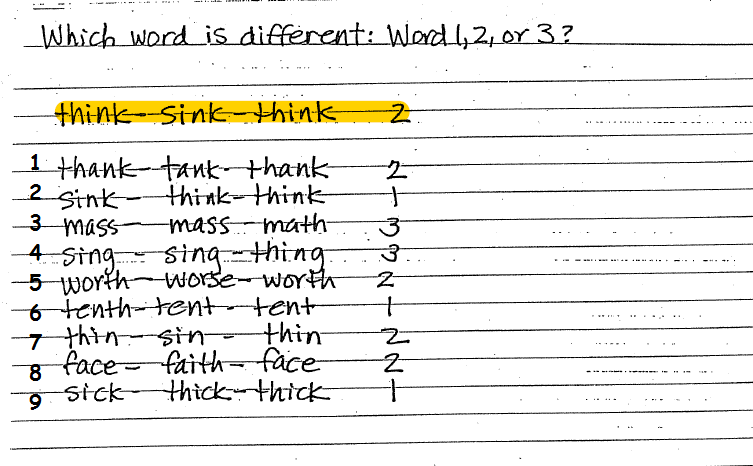 Which word is different: Word 1, 2, or 3?
think - sink - think 2
1 thank - tank - thank 2
2 sink - think - think 1
3 mass - mass - math 3
4 sing - sing - thing 3
5 worth - worse - worth 2
6 tenth - tent - tent 1
7 thin - sin - thin 2
8 face - faith - face 2
9 sick - thick - thick 1